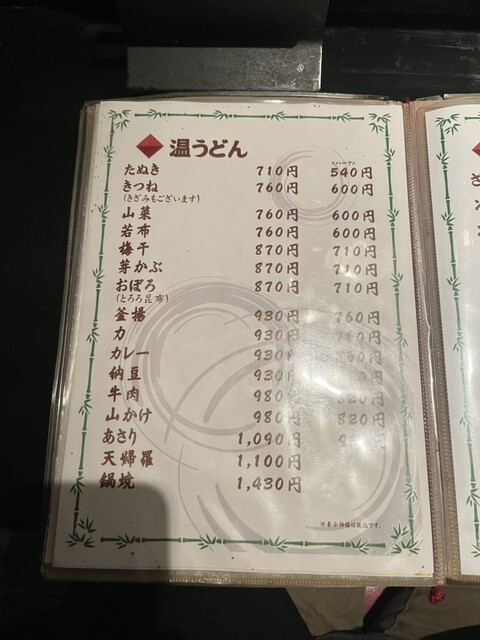 温うどん
<ハーフ>
たぬき 710円 540円
きつね 760円 600円
(きざみもございます)
山菜 760円 600円
若布 760円 600円
梅干 870円 710円
芽かぶ 870円 710円
おぼろ 870円 710円
(とろろ昆布)
釜揚 930円 760円
力 930円 760円
カレー 930円 760円
納豆 930円
牛肉 980円 820円
山かけ 980円 820円
あさり 1,090円
天婦羅 1,100円
鍋焼 1,430円
※表示価格は税込です。